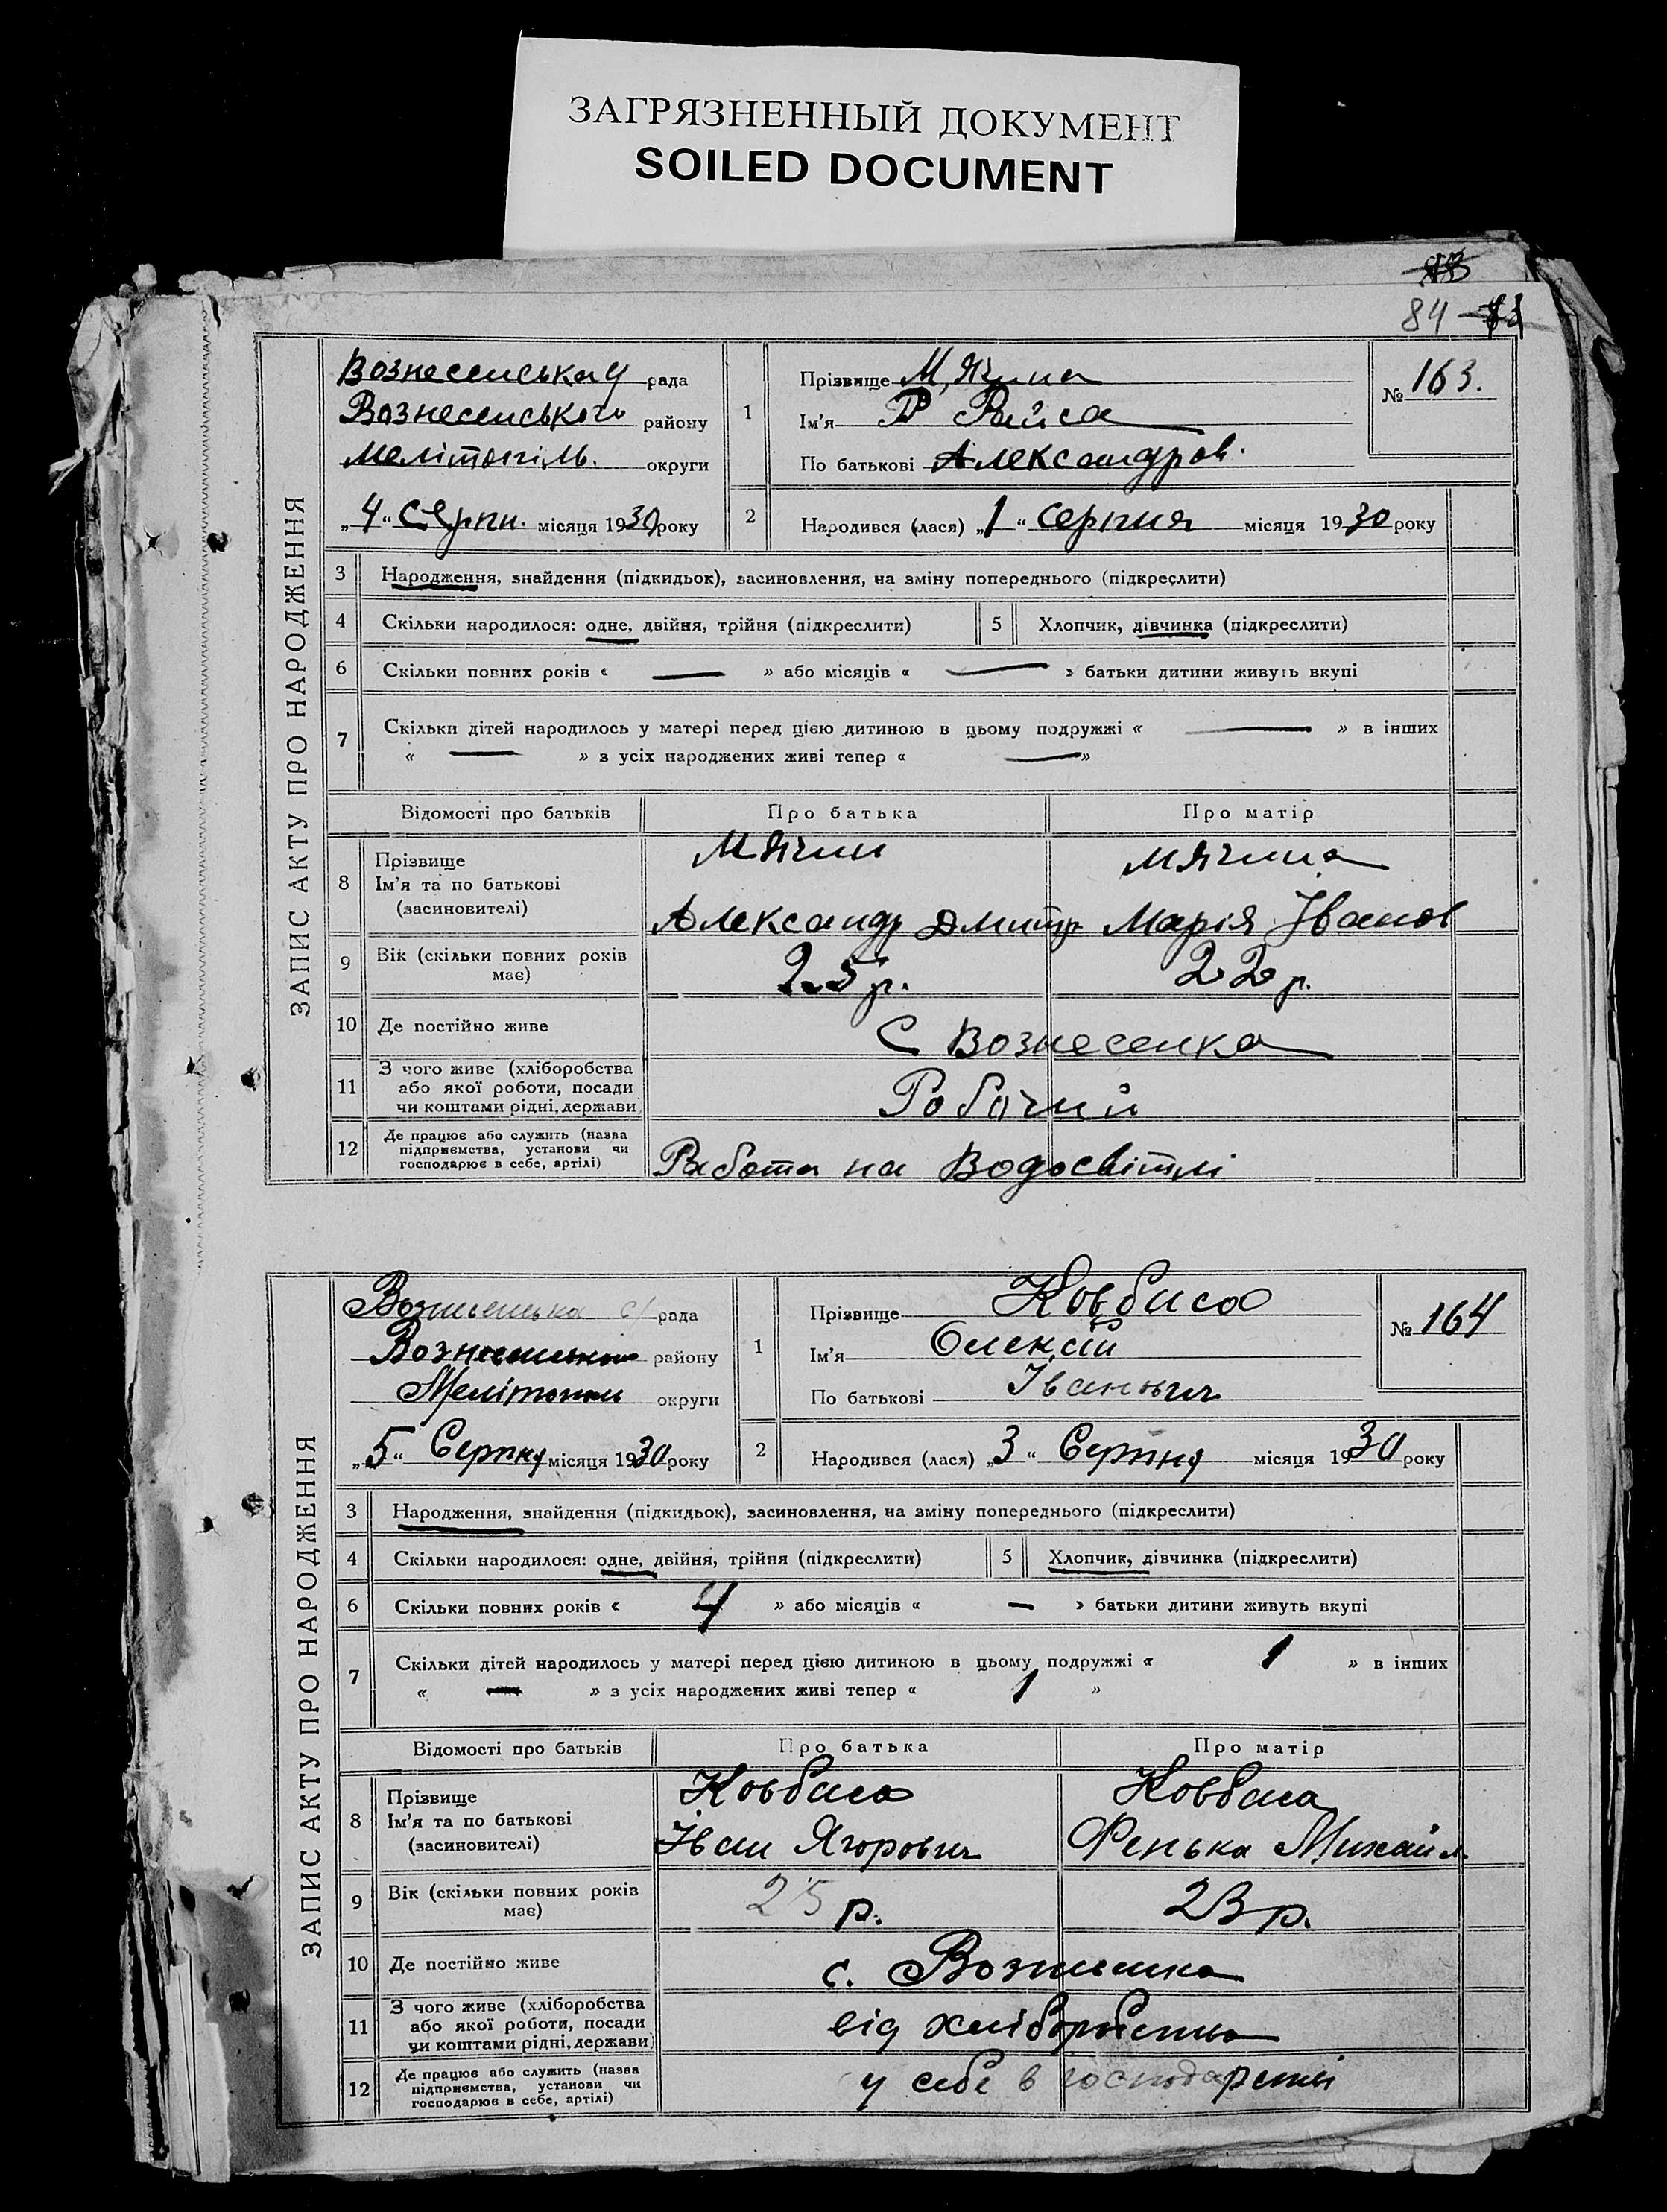 ЗАГРЯЗНЕННЫЙ ДОКУМЕНТ
SOILED DOCUMENT
84
ЗАПИС АКТУ ПРО НАРОДЖЕННЯ
Вознесенська рада
Вознесенського району
Мелітопіль. округи
„4“ Серпн. місяця 1930 року
1
Прізвище Мячина
Ім'я Раиса
По батькові Александров.
№ 163.
2
Народився (лася) „1“ серпня місяця 1930 року
3 Народження, знайдення (підкидьок), засиновлення, на зміну попереднього (підкреслити)
4 Скільки народилося: одне, двійня, трійня (підкреслити) 5 Хлопчик, дівчинка (підкреслити)
6 Скільки повних років « — » або місяців « — » батьки дитини живуть вкупі
7 Скільки дітей народилось у матері перед цією дитиною в цьому подружжі « — » в інших
« — » з усіх народжених живі тепер « — »
Відомості про батьків Про батька Про матір
8 Прізвище
Ім'я та по батькові
(засиновителі)
Мячин Мячина
Александр Дмитр Марія Іванов
9 Вік (скільки повних років
має)
25 р. 22 р.
10 Де постійно живе С Вознесенка
11 З чого живе (хліборобства
або якої роботи, посади
чи коштами рідні, держави
Робочий
12 Де працює або служить (назва
підприємства, установи чи
господарює в себе, артілі)
Работа на Водосвітлі
ЗАПИС АКТУ ПРО НАРОДЖЕННЯ
рада
району
округи
„5“ Серпня місяця 1930 року
1
Прізвище Ковбаса
Ім'я Олексій
По батькові Іванович
№ 164
2
Народився (лася) „3“ Серпня місяця 1930 року
3 Народження, знайдення (підкидьок), засиновлення, на зміну попереднього (підкреслити)
4 Скільки народилося: одне, двійня, трійня (підкреслити) 5 Хлопчик, дівчинка (підкреслити)
6 Скільки повних років « 4 » або місяців « — » батьки дитини живуть вкупі
7 Скільки дітей народилось у матері перед цією дитиною в цьому подружжі « 1 » в інших
« — » з усіх народжених живі тепер « 1 »
Відомості про батьків Про батька Про матір
8 Прізвище
Ім'я та по батькові
(засиновителі)
Ковбаса Ковбаса
Іван Ягорович Фенька Михайл.
9 Вік (скільки повних років
має)
25 р. 23 р.
10 Де постійно живе с. Вознесенка
11 З чого живе (хліборобства
або якої роботи, посади
чи коштами рідні, держави)
від хліборобства
12 Де працює або служить (назва
підприємства, установи чи
господарює в себе, артілі)
у себе в господарстві